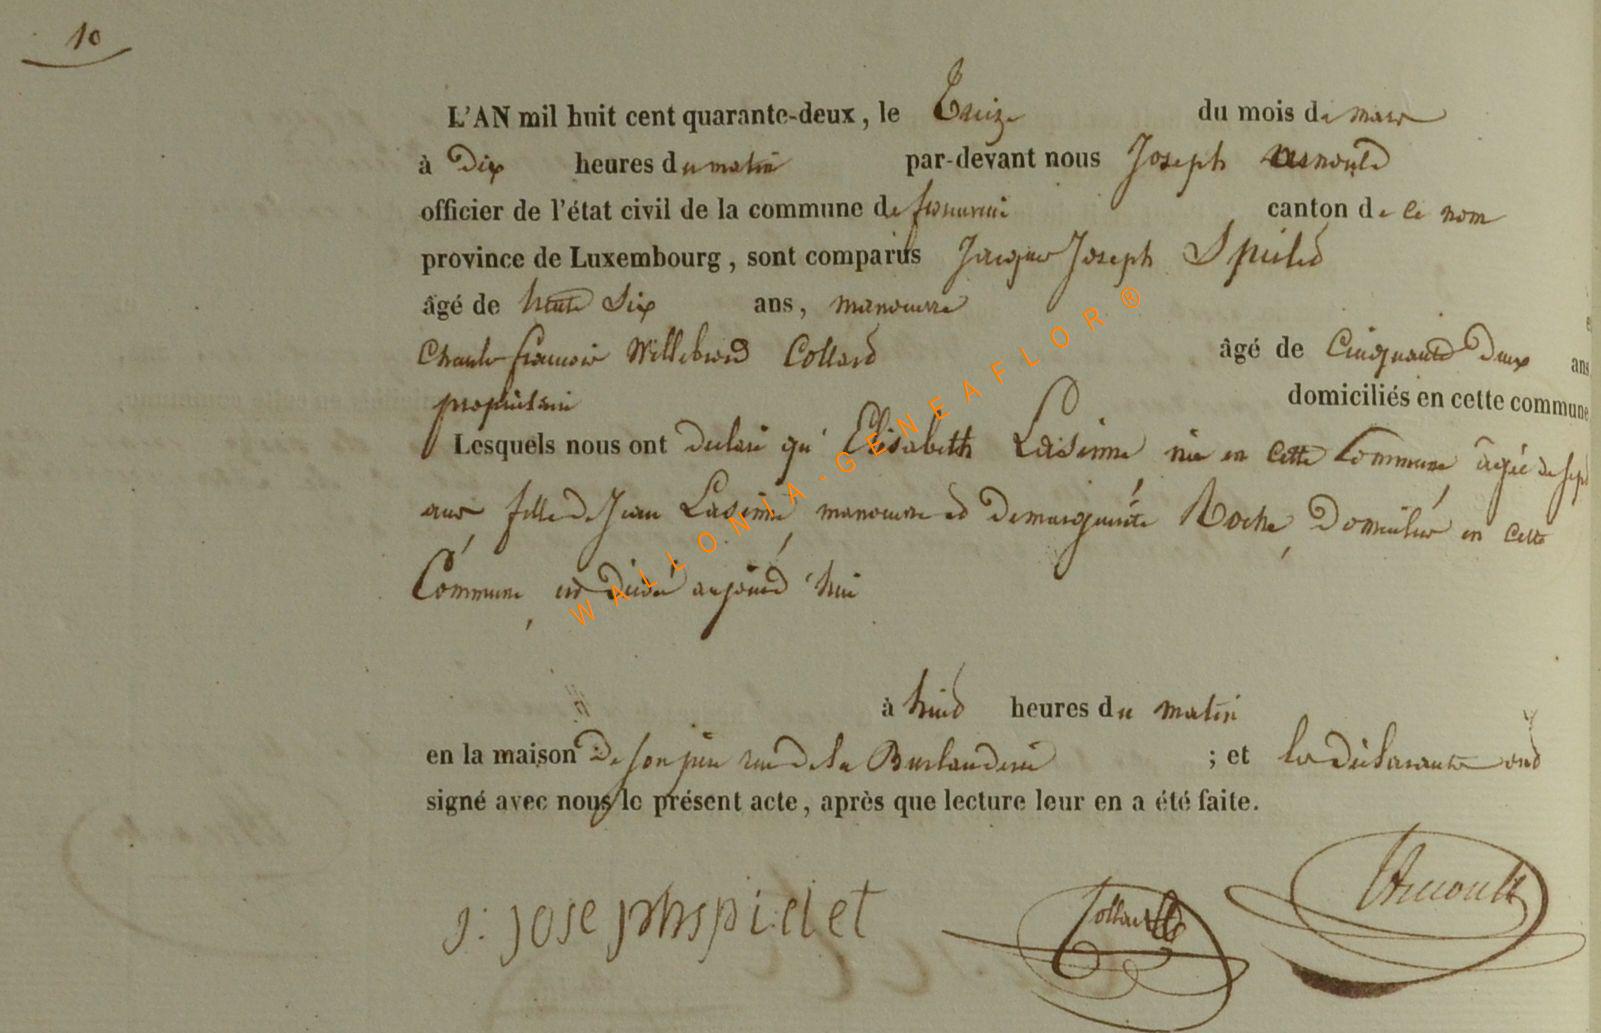 10
L'AN mil huit cent quarante-deux, le Treize du mois de mars
à Dix heures du matin par-devant nous Joseph Arnould
officier de l'état civil de la commune de canton de ce nom
province de Luxembourg, sont comparus Jacques Joseph
âgé de trente Six ans, manouvre
Charles francois Willebrord Collard âgé de Cinquante Deux ans
propriétaire domiciliés en cette commune
Lesquels nous ont déclaré qu' Elisabeth née en cette Commune, âgée de sept
ans fille de Jean manouvre et de marguerite Roche, Domiciliés en cette
Commune, est décédé aujourd'hui
à huit heures du matin
en la maison de son père rue de la ; et les déclarants ont
signé avec nous le présent acte, après que lecture leur en a été faite.
j: josephspidlet Collard Arnould
WALLONIA-GENEAFLOR®